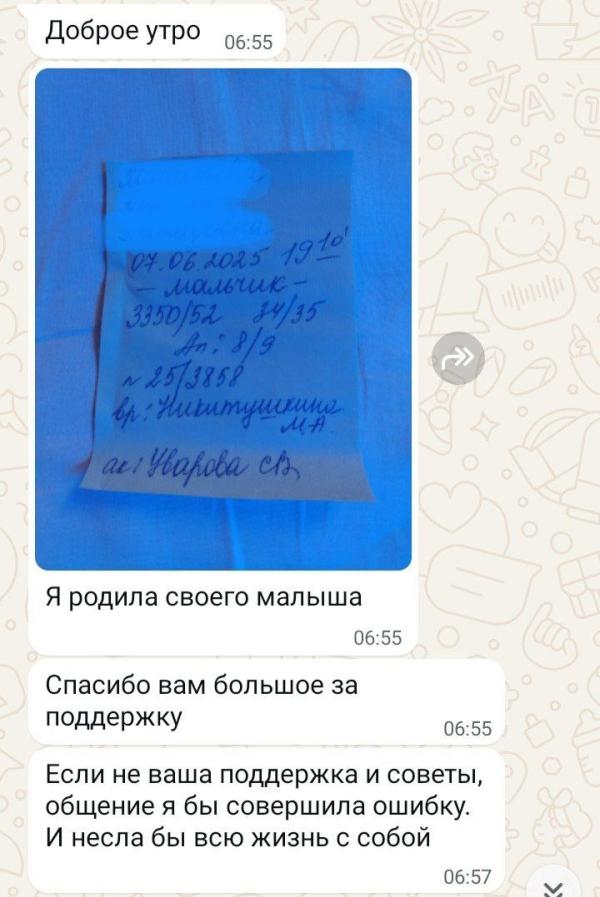 Доброе утро
06:55
07.06.2025 19 10'
— мальчик —
3350/52 34/35
Ап: 8/9
N 25/3858
вр: Никитушкина
М.А.
ак: Уварова СВ
Я родила своего малыша
06:55
Спасибо вам большое за
поддержку
06:55
Если не ваша поддержка и советы,
общение я бы совершила ошибку.
И несла бы всю жизнь с собой
06:57